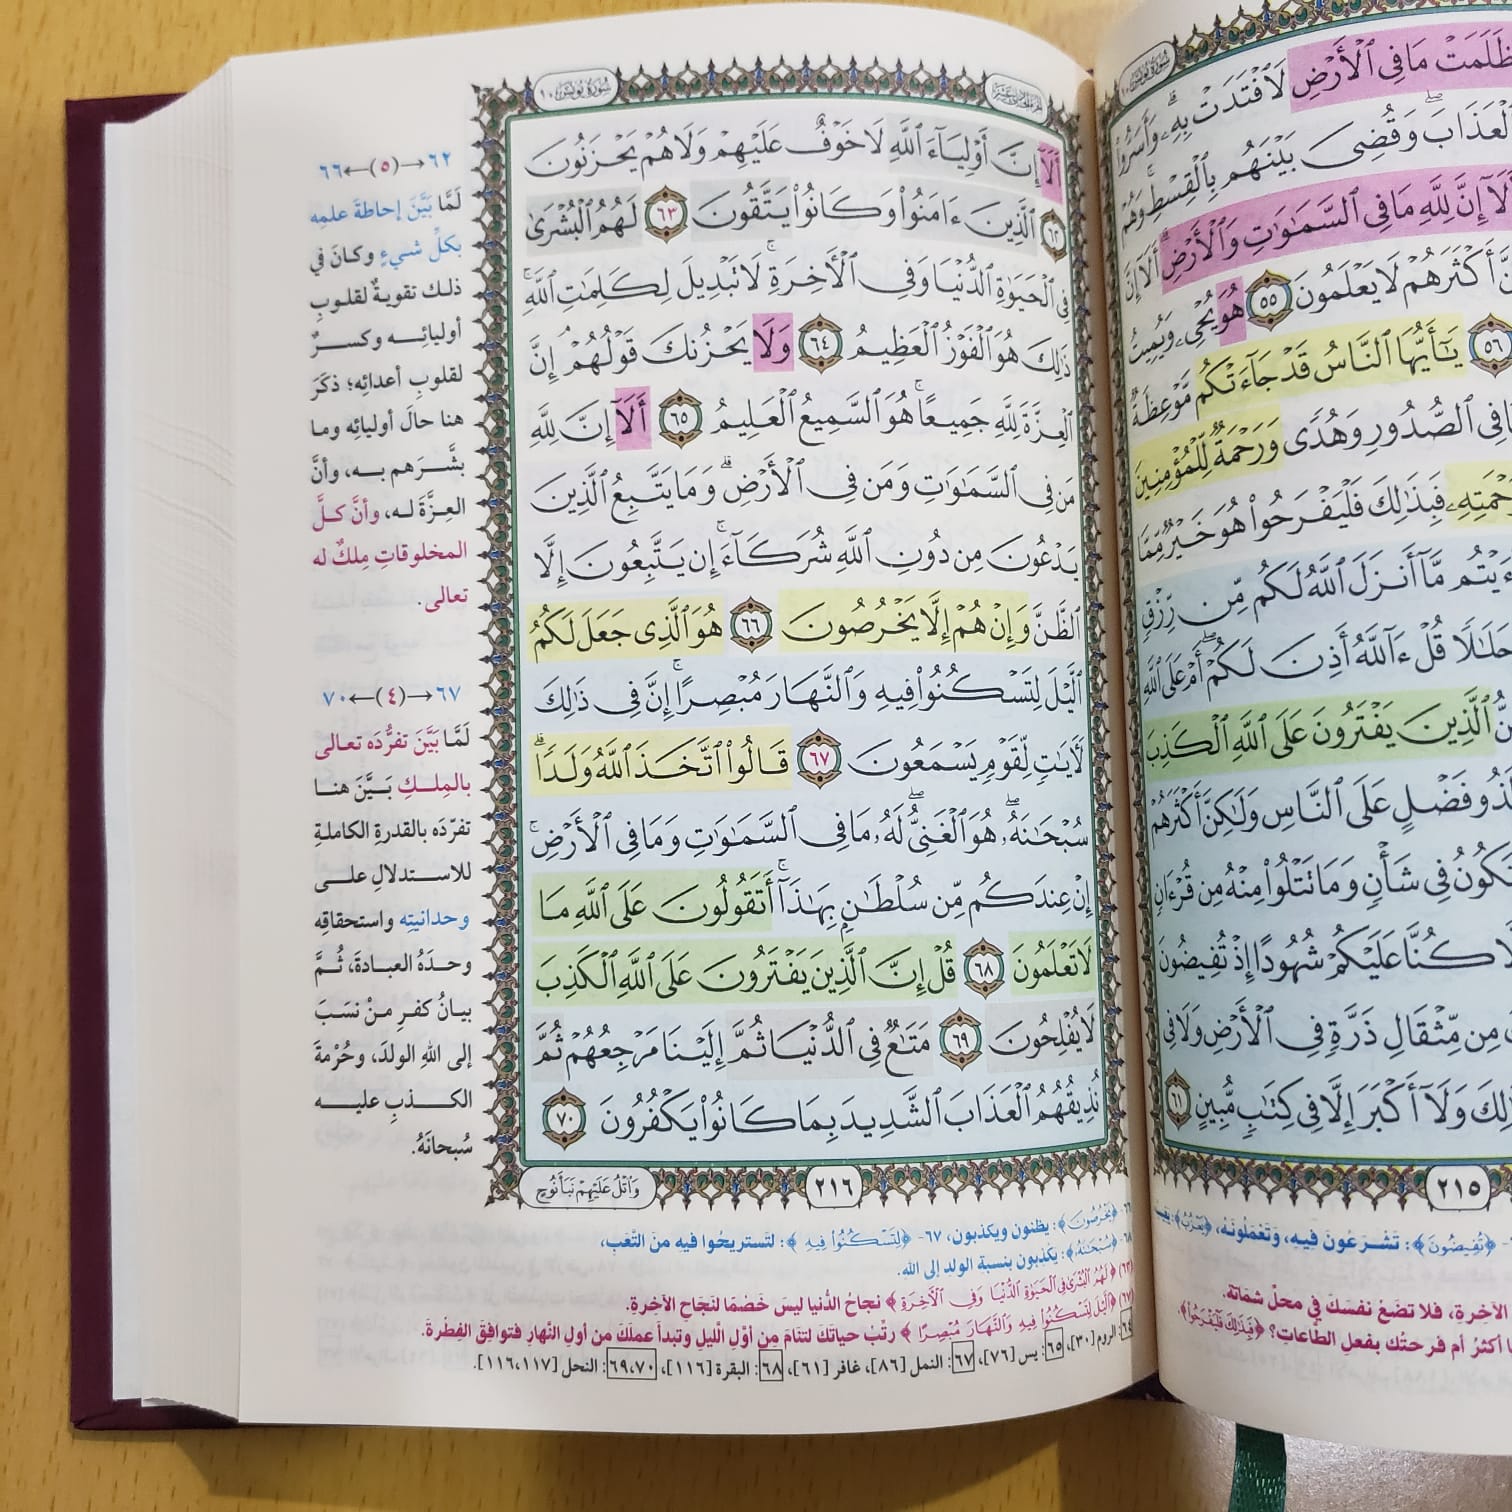 سُورَةُ يُونُسَ ١٠
ظَلَمَتۡ مَا فِي ٱلۡأَرۡضِ لَٱفۡتَدَتۡ بِهِۦۗ وَأَسَرُّواْ
ٱلۡعَذَابَۖ وَقُضِيَ بَيۡنَهُم بِٱلۡقِسۡطِ وَهُمۡ
أَلَآ إِنَّ لِلَّهِ مَا فِي ٱلسَّمَٰوَٰتِ وَٱلۡأَرۡضِۗ أَلَآ إِنَّ
أَكۡثَرَهُمۡ لَا يَعۡلَمُونَ ٥٥ هُوَ يُحۡيِۦ وَيُمِيتُ
٥٦ يَٰٓأَيُّهَا ٱلنَّاسُ قَدۡ جَآءَتۡكُم مَّوۡعِظَةٞ
فِي ٱلصُّدُورِ وَهُدٗى وَرَحۡمَةٞ لِّلۡمُؤۡمِنِينَ
فَبِذَٰلِكَ فَلۡيَفۡرَحُواْ هُوَ خَيۡرٞ مِّمَّا
مَّآ أَنزَلَ ٱللَّهُ لَكُم مِّن رِّزۡقٖ
حَلَٰلٗا قُلۡ ءَآللَّهُ أَذِنَ لَكُمۡۖ أَمۡ عَلَى ٱللَّهِ
ٱلَّذِينَ يَفۡتَرُونَ عَلَى ٱللَّهِ ٱلۡكَذِبَ
لَذُو فَضۡلٍ عَلَى ٱلنَّاسِ وَلَٰكِنَّ أَكۡثَرَهُمۡ
تَكُونُ فِي شَأۡنٖ وَمَا تَتۡلُواْ مِنۡهُ مِن قُرۡءَانٖ
كُنَّا عَلَيۡكُمۡ شُهُودًا إِذۡ تُفِيضُونَ
مِن مِّثۡقَالِ ذَرَّةٖ فِي ٱلۡأَرۡضِ وَلَا فِي
وَلَآ أَكۡبَرَ إِلَّا فِي كِتَٰبٖ مُّبِينٍ ٦١
٢١٥
﴿تُفِيضُونَ﴾: تَشْرَعُونَ فِيهِ، وَتَعْمَلُونَهُ،
الآخِرةِ، فلا تضَعْ نفسَكَ في محلِّ شماتة.
أكثرُ أم فرحتُك بفعلِ الطَّاعات؟ ﴿فَبِذَٰلِكَ فَلۡيَفۡرَحُواْ﴾.
سُورَةُ يُونُسَ ١٠
أَلَآ إِنَّ أَوۡلِيَآءَ ٱللَّهِ لَا خَوۡفٌ عَلَيۡهِمۡ وَلَا هُمۡ يَحۡزَنُونَ
٦٢ ٱلَّذِينَ ءَامَنُواْ وَكَانُواْ يَتَّقُونَ ٦٣ لَهُمُ ٱلۡبُشۡرَىٰ
فِي ٱلۡحَيَوٰةِ ٱلدُّنۡيَا وَفِي ٱلۡأٓخِرَةِۚ لَا تَبۡدِيلَ لِكَلِمَٰتِ ٱللَّهِۚ
ذَٰلِكَ هُوَ ٱلۡفَوۡزُ ٱلۡعَظِيمُ ٦٤ وَلَا يَحۡزُنكَ قَوۡلُهُمۡۘ إِنَّ
ٱلۡعِزَّةَ لِلَّهِ جَمِيعًاۚ هُوَ ٱلسَّمِيعُ ٱلۡعَلِيمُ ٦٥ أَلَآ إِنَّ لِلَّهِ
مَن فِي ٱلسَّمَٰوَٰتِ وَمَن فِي ٱلۡأَرۡضِۗ وَمَا يَتَّبِعُ ٱلَّذِينَ
يَدۡعُونَ مِن دُونِ ٱللَّهِ شُرَكَآءَۚ إِن يَتَّبِعُونَ إِلَّا
ٱلظَّنَّ وَإِنۡ هُمۡ إِلَّا يَخۡرُصُونَ ٦٦ هُوَ ٱلَّذِي جَعَلَ لَكُمُ
ٱلَّيۡلَ لِتَسۡكُنُواْ فِيهِ وَٱلنَّهَارَ مُبۡصِرًاۚ إِنَّ فِي ذَٰلِكَ
لَأٓيَٰتٖ لِّقَوۡمٖ يَسۡمَعُونَ ٦٧ قَالُواْ ٱتَّخَذَ ٱللَّهُ وَلَدٗاۗ
سُبۡحَٰنَهُۥۖ هُوَ ٱلۡغَنِيُّۖ لَهُۥ مَا فِي ٱلسَّمَٰوَٰتِ وَمَا فِي ٱلۡأَرۡضِۚ
إِنۡ عِندَكُم مِّن سُلۡطَٰنِۭ بِهَٰذَآۚ أَتَقُولُونَ عَلَى ٱللَّهِ مَا
لَا تَعۡلَمُونَ ٦٨ قُلۡ إِنَّ ٱلَّذِينَ يَفۡتَرُونَ عَلَى ٱللَّهِ ٱلۡكَذِبَ
لَا يُفۡلِحُونَ ٦٩ مَتَٰعٞ فِي ٱلدُّنۡيَا ثُمَّ إِلَيۡنَا مَرۡجِعُهُمۡ ثُمَّ
نُذِيقُهُمُ ٱلۡعَذَابَ ٱلشَّدِيدَ بِمَا كَانُواْ يَكۡفُرُونَ ٧٠
٢١٦
وَٱتۡلُ عَلَيۡهِمۡ نَبَأَ نُوحٍ
٦٢→(٥)←٦٦
لَمَّا بَيَّنَ إحاطةَ علمِه
بكلِّ شيءٍ وكانَ في
ذلك تقويةٌ لقلوبِ
أوليائِه وكسرٌ
لقلوبِ أعدائِه؛ ذكَرَ
هنا حالَ أوليائِه وما
بشَّرَهم به، وأنَّ
العِزَّةَ له، وأنَّ كلَّ
المخلوقاتِ مِلكٌ له
تعالى.
٦٧→(٤)←٧٠
لَمَّا بَيَّنَ تفرُّدَه تعالى
بالمِلكِ بَيَّنَ هنا
تفرّدَه بالقدرةِ الكاملةِ
للاستدلالِ على
وحدانيتِه واستحقاقِه
وحدَهُ العبادةَ، ثُمَّ
بيانُ كفرِ منْ نسَبَ
إلى اللهِ الولدَ، وحُرْمةَ
الكذبِ عليه
سُبحانَهُ.
٦٦- ﴿يَخۡرُصُونَ﴾: يظنون ويكذبون، ٦٧- ﴿لِتَسۡكُنُواْ فِيهِ﴾: لتستريحُوا فيهِ منَ التَّعَبِ،
٦٨- ﴿سُبۡحَٰنَهُۥ﴾: يكذبون بنسبة الولد إلى الله.
(٦٤) ﴿لَهُمُ ٱلۡبُشۡرَىٰ فِي ٱلۡحَيَوٰةِ ٱلدُّنۡيَا وَفِي ٱلۡأٓخِرَةِ﴾ نجاحُ الدُّنيا ليسَ خَصْمًا لنَجَاحِ الآخِرةِ.
(٦٧) ﴿ٱلَّيۡلَ لِتَسۡكُنُواْ فِيهِ وَٱلنَّهَارَ مُبۡصِرًا﴾ رتِّبْ حياتَكَ لتنَامَ مِن أوَّلِ اللَّيلِ وتبدأَ عملَكَ من أولِ النَّهارِ فتوافقَ الفِطرةَ.
٦٤: الروم [٣٠]، ٦٥: يس [٧٦]، ٦٧: النمل [٨٦]، غافر [٦١]، ٦٨: البقرة [١١٦]، ٦٩،٧٠: النحل [١١٦،١١٧].